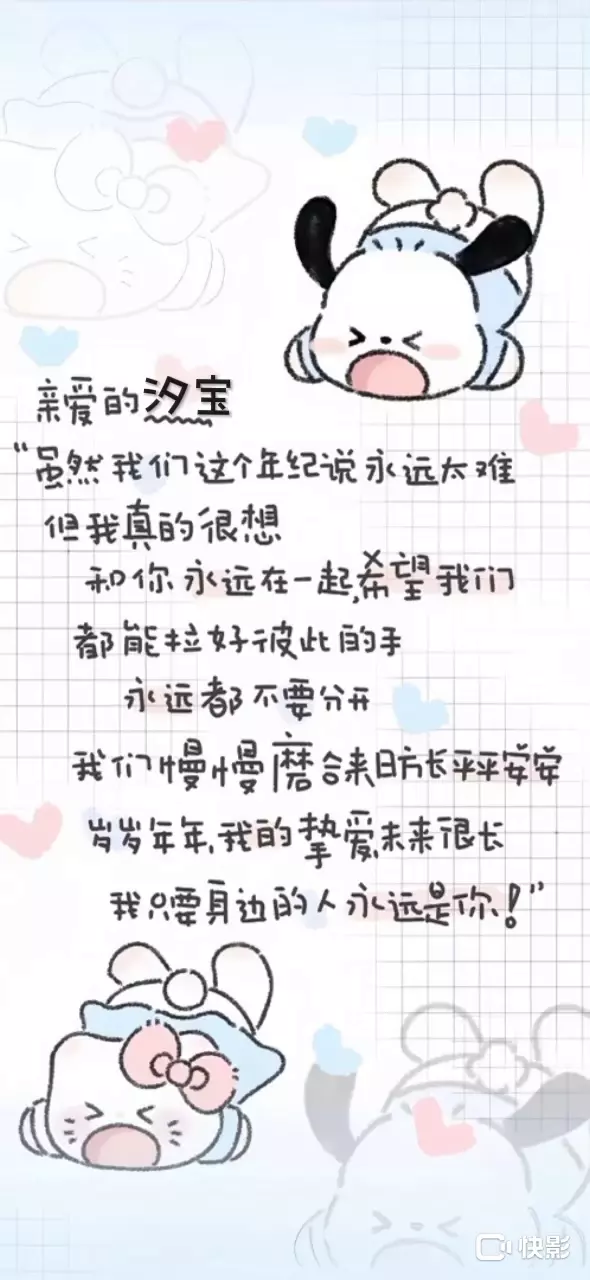 亲爱的汐宝
“虽然我们这个年纪说永远太难
但我真的很想
和你永远在一起,希望我们
都能拉好彼此的手
永远都不要分开
我们慢慢磨合来日方长平平安安
岁岁年年,我的挚爱,未来很长
我只要身边的人永远是你!”
快影